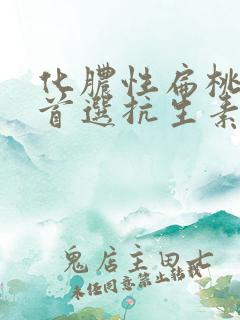 化膿性扁桃
首選抗生素
鬼店主田七
未经同意禁止转载